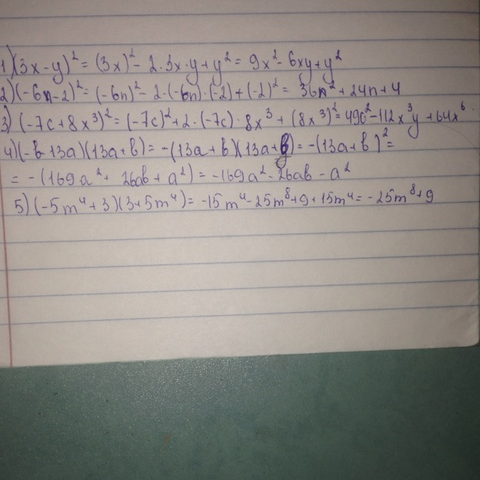 1) (3x-y)² = (3x)² - 2·3x·y + y² = 9x² - 6xy + y²
2) (-6n-2)² = (-6n)² - 2·(-6n)·(-2) + (-2)² = 36n² + 24n + 4
3) (-7c+8x³)² = (-7c)² + 2·(-7c)·8x³ + (8x³)² = 49c² - 112x³y + 64x⁶.
4) (-b-13a)(13a+b) = -(13a+b)(13a+b) = -(13a+b)² =
= -(169a² + 26ab + a²) = -169a² - 26ab - a²
5) (-5m⁴+3)(3+5m⁴) = -15m⁴ - 25m⁸ + 9 + 15m⁴ = -25m⁸ + 9